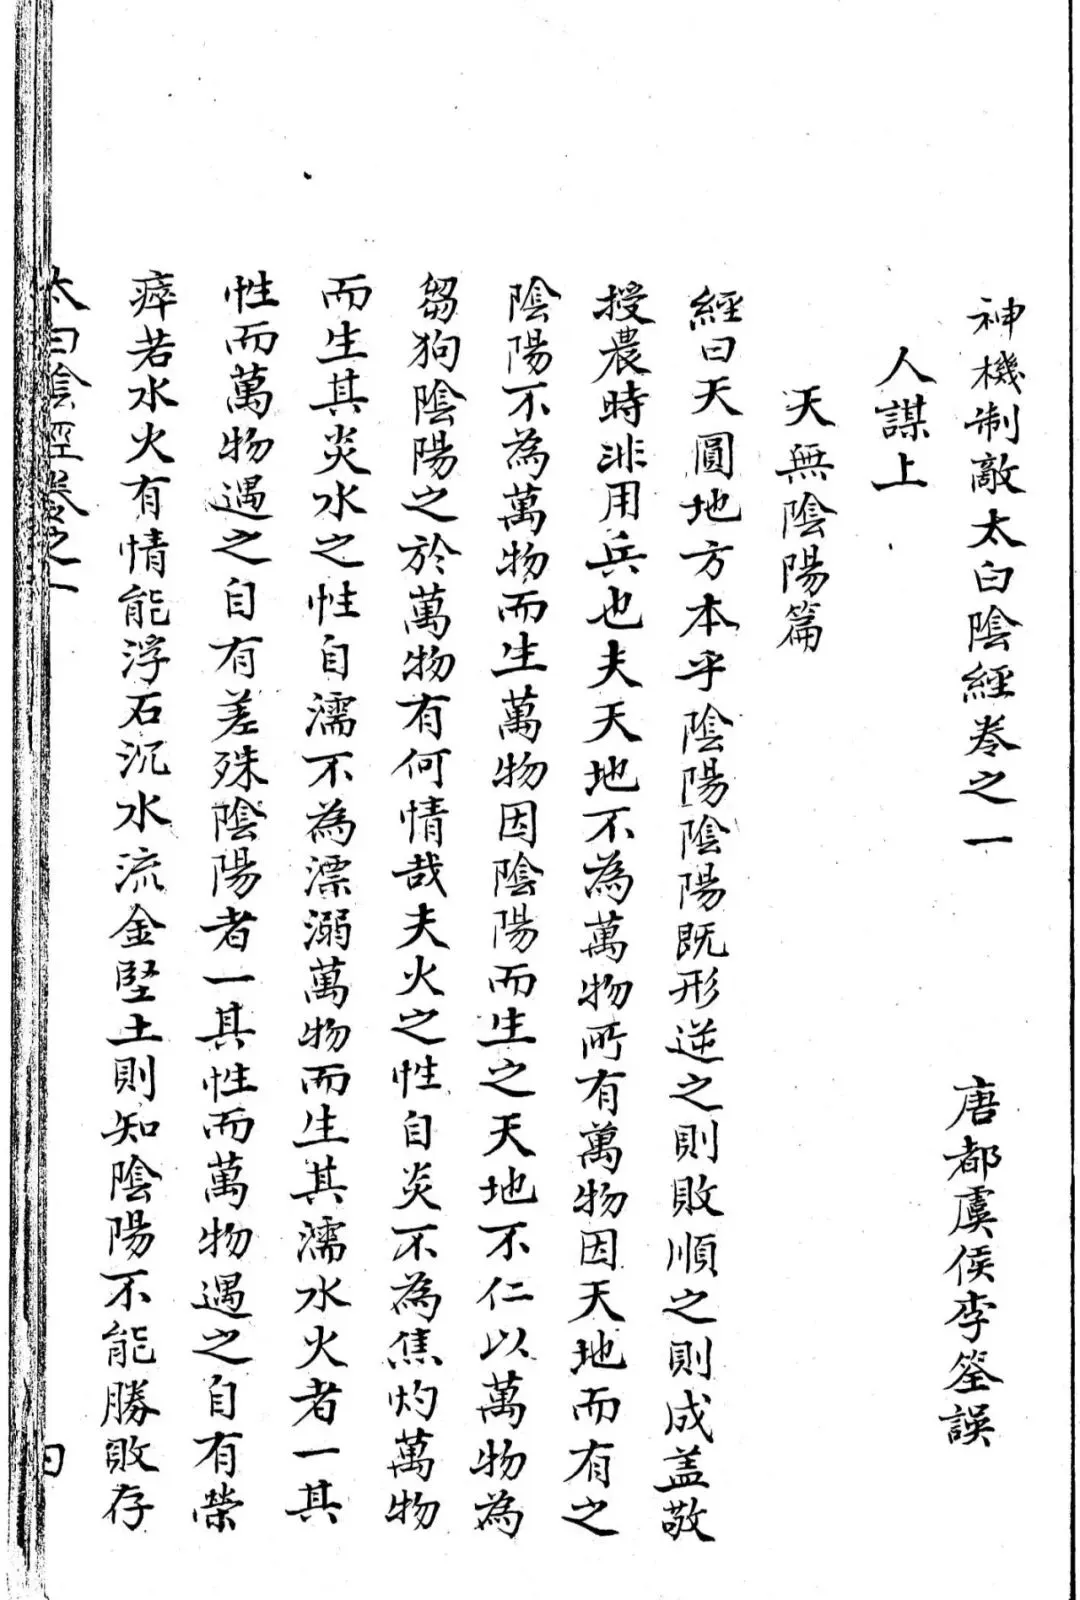 神機制敵太白陰經卷之一
唐都虞侯李筌誤
人謀上
天無陰陽篇
經曰天圓地方本乎陰陽陰陽既形逆之則敗順之則成盖敬
授農時非用兵也夫天地不為萬物所有萬物因天地而有之
陰陽不為萬物而生萬物因陰陽而生之天地不仁以萬物為
芻狗陰陽之於萬物有何情哉夫火之性自炎不為焦灼萬物
而生其炎水之性自濡不為漂溺萬物而生其濡水火者一其
性而萬物遇之自有差殊陰陽者一其性而萬物遇之自有榮
瘁若水火有情能浮石沉水流金堅土則知陰陽不能勝敗存
太白陰經卷之一